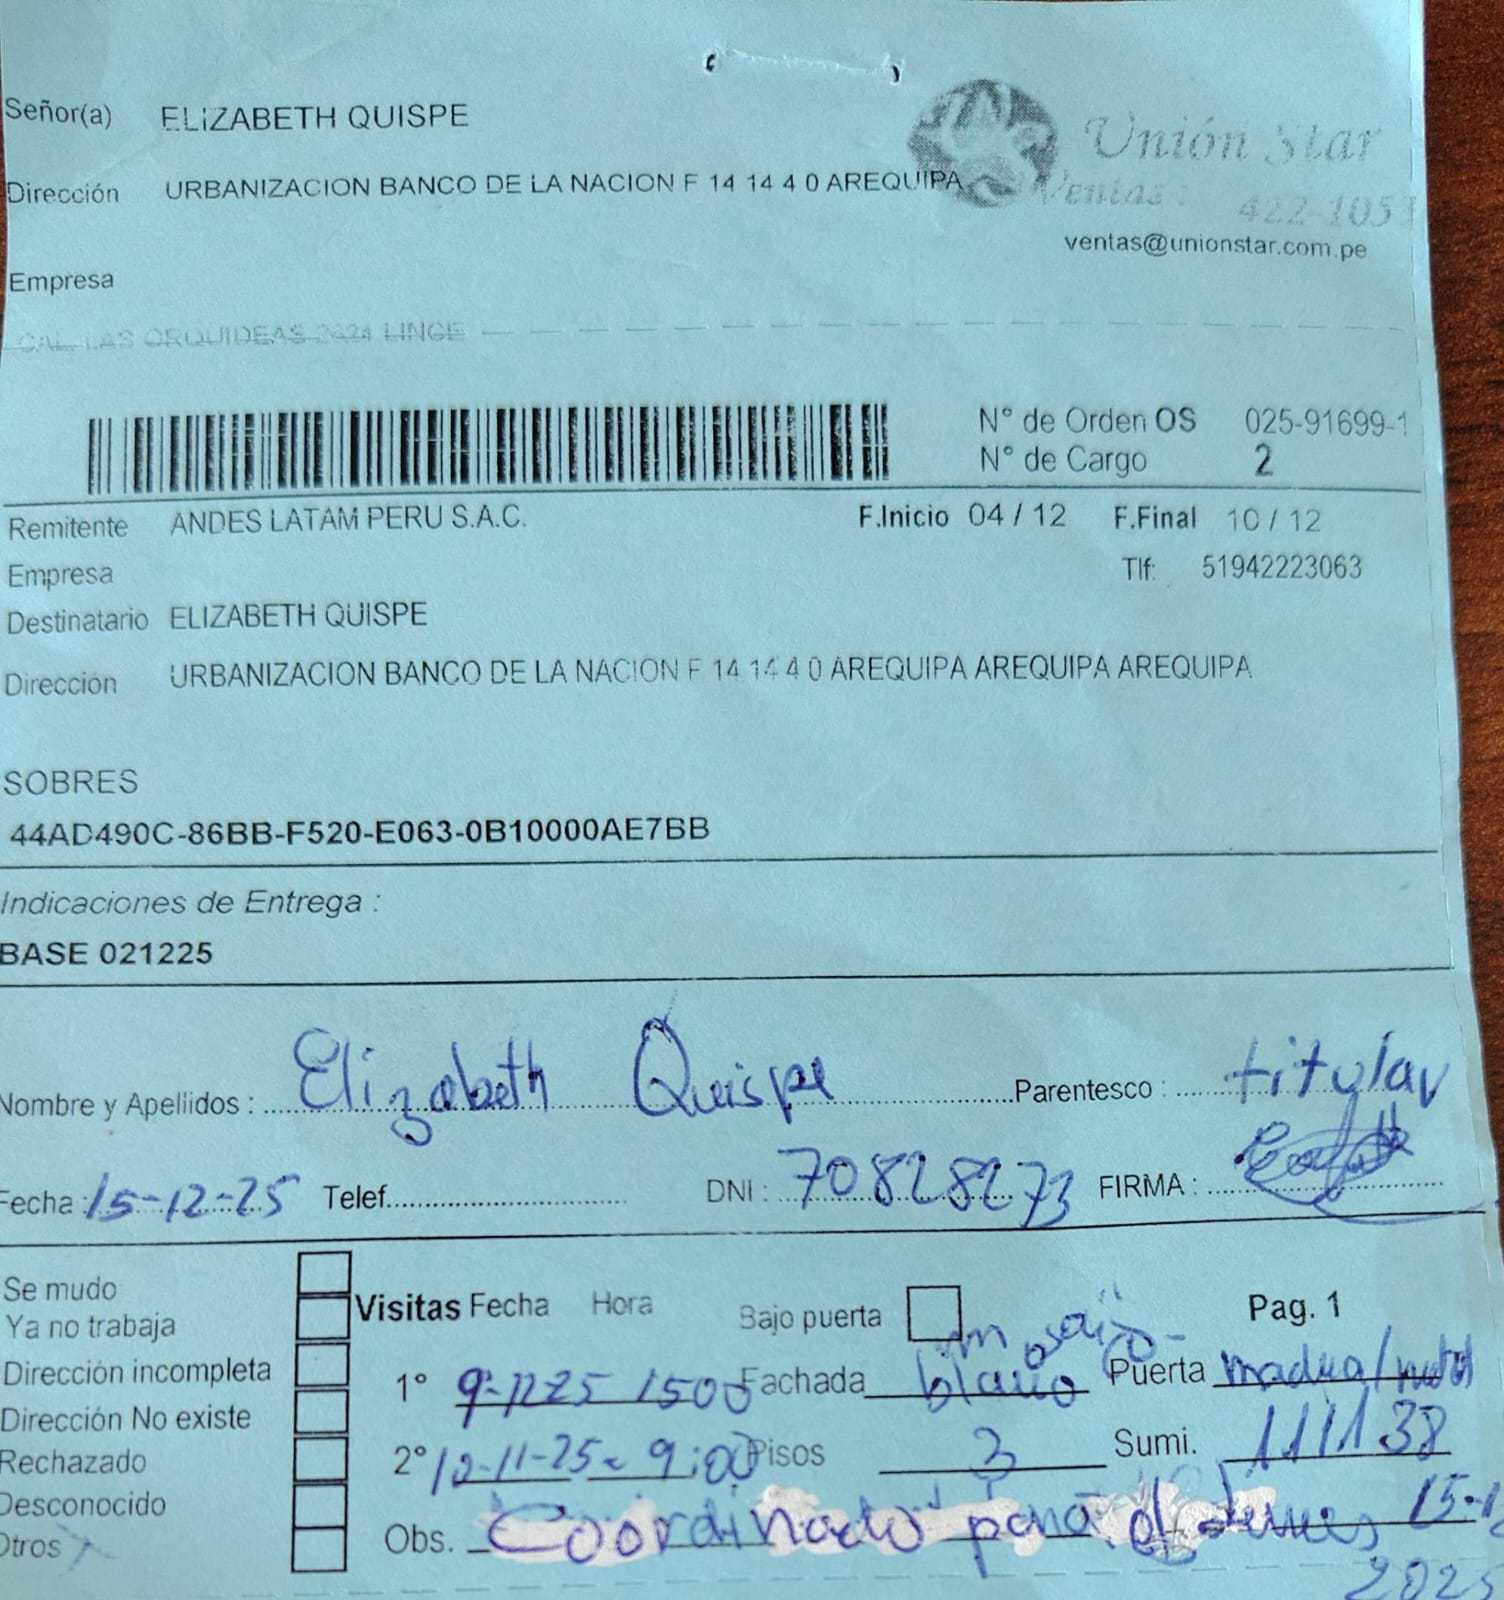 Señor(a) ELIZABETH QUISPE
Unión Star
Dirección URBANIZACION BANCO DE LA NACION F 14 14 4 0 AREQUIPA
Ventas : 422-1053
ventas@unionstar.com.pe
Empresa
CAL. LAS ORQUIDEAS 2424 LINCE
N° de Orden OS 025-91699-1
N° de Cargo 2
Remitente ANDES LATAM PERU S.A.C. F.Inicio 04 / 12 F.Final 10 / 12
Empresa Tlf: 51942223063
Destinatario ELIZABETH QUISPE
Dirección URBANIZACION BANCO DE LA NACION F 14 14 4 0 AREQUIPA AREQUIPA AREQUIPA
SOBRES
44AD490C-86BB-F520-E063-0B10000AE7BB
Indicaciones de Entrega :
BASE 021225
Nombre y Apellidos : Elizabeth Quispe Parentesco : titular
Fecha : 15-12-25 Telef. DNI : 70828273 FIRMA :
Se mudo
Ya no trabaja Visitas Fecha Hora Bajo puerta Pag. 1
mosaico
Dirección incompleta 1° 9-1225 1500 Fachada blanco Puerta
Dirección No existe
Rechazado 2° 12-11-25 9:00 Pisos 3 Sumi. 111138
Desconocido
Otros Obs. Coordinado para el 15-1
2025